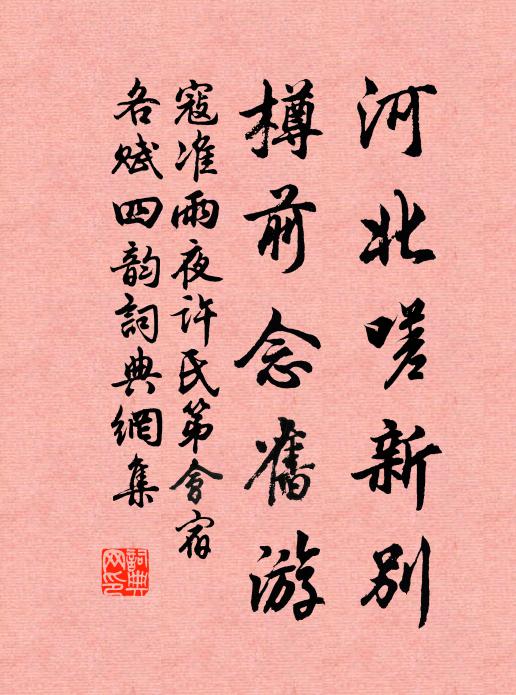 河北嗟新别
樽前念舊游
寇准雨夜许氏第會宿
各赋四韵詞典網集
詞典
网印